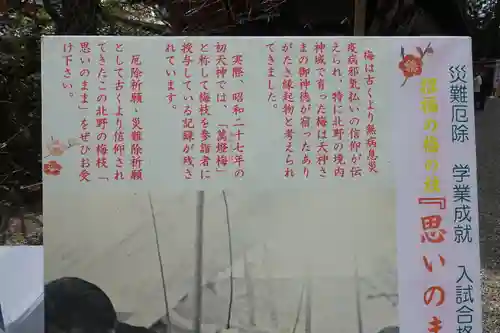 災難厄除　学業成就　入試合格
『思いのま
梅は古くより無病息災
疫病邪気払いの信仰が伝
えられ、特に北野の境内
神域で育った梅は天神さ
まの御神徳が宿ったあり
がたき縁起物と考えられ
てきました。
実際、昭和二十七年の
初天神では、「萬燈梅」
と称して梅枝を参詣者に
授与している記録が残さ
れています。
厄除祈願・災難除祈願
として古くより信仰され
てきたこの北野の梅枝、「
思いのまま」をぜひお受
け下さい。